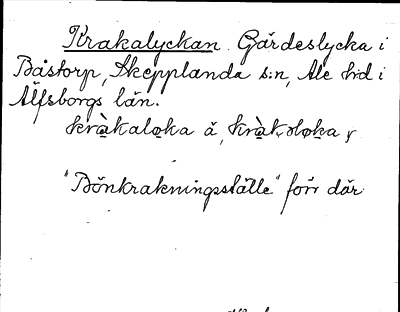 Krakalyckan Gärdeslycka i
Båstorp, Skepplanda s:n, Ale hd i
Älfsborgs län.
kràkaløka å,
"Bönkrakningsställe" förr där